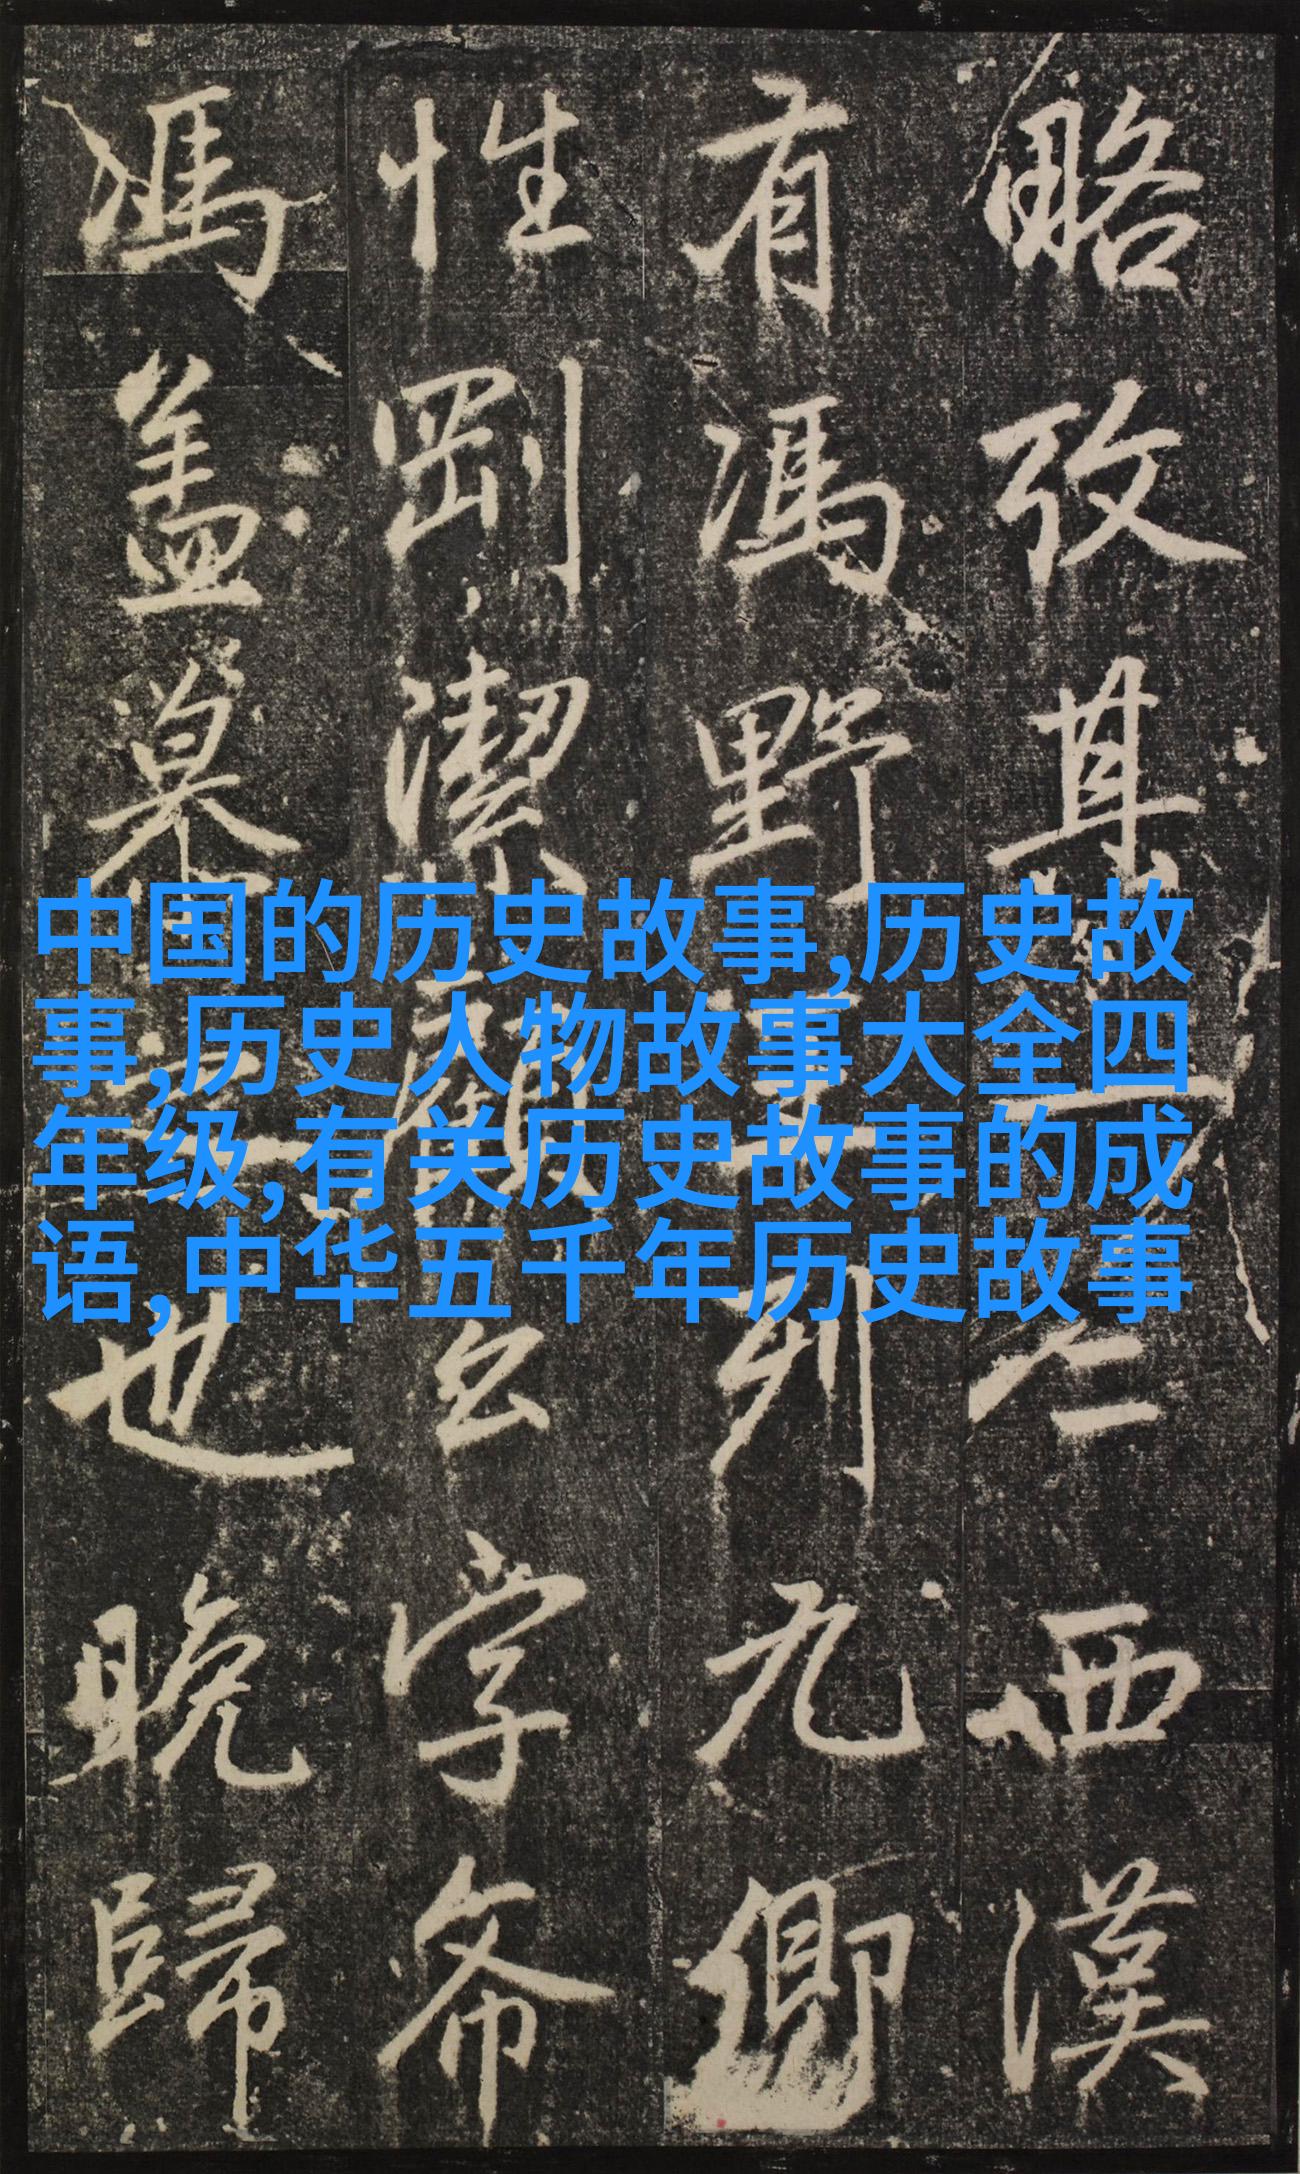 略攷其一二西漢
有馮野王列九卿
性剛潔顧以字希
馮盖慕之也晚歸
中国的历史故事,历史故
事,历史人物故事大全四
年级,有关历史故事的成
语,中华五千年历史故事